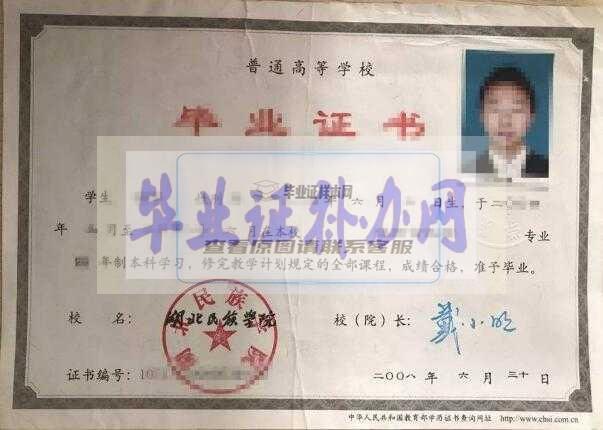 普通高等学校
毕业证书
毕业证样本网
学生 六月 日生，于二
毕业证补办网
年 月至 六月在本校 专业
查看原图请联系客服
年制本科学习，修完教学计划规定的全部课程，成绩合格，准予毕业。
校 名：湖北民族学院 校（院）长：戴小明
证书编号：10 二〇〇八年 六月 三十日
中华人民共和国教育部学历证书查询网址 http://www.chsi.com.cn